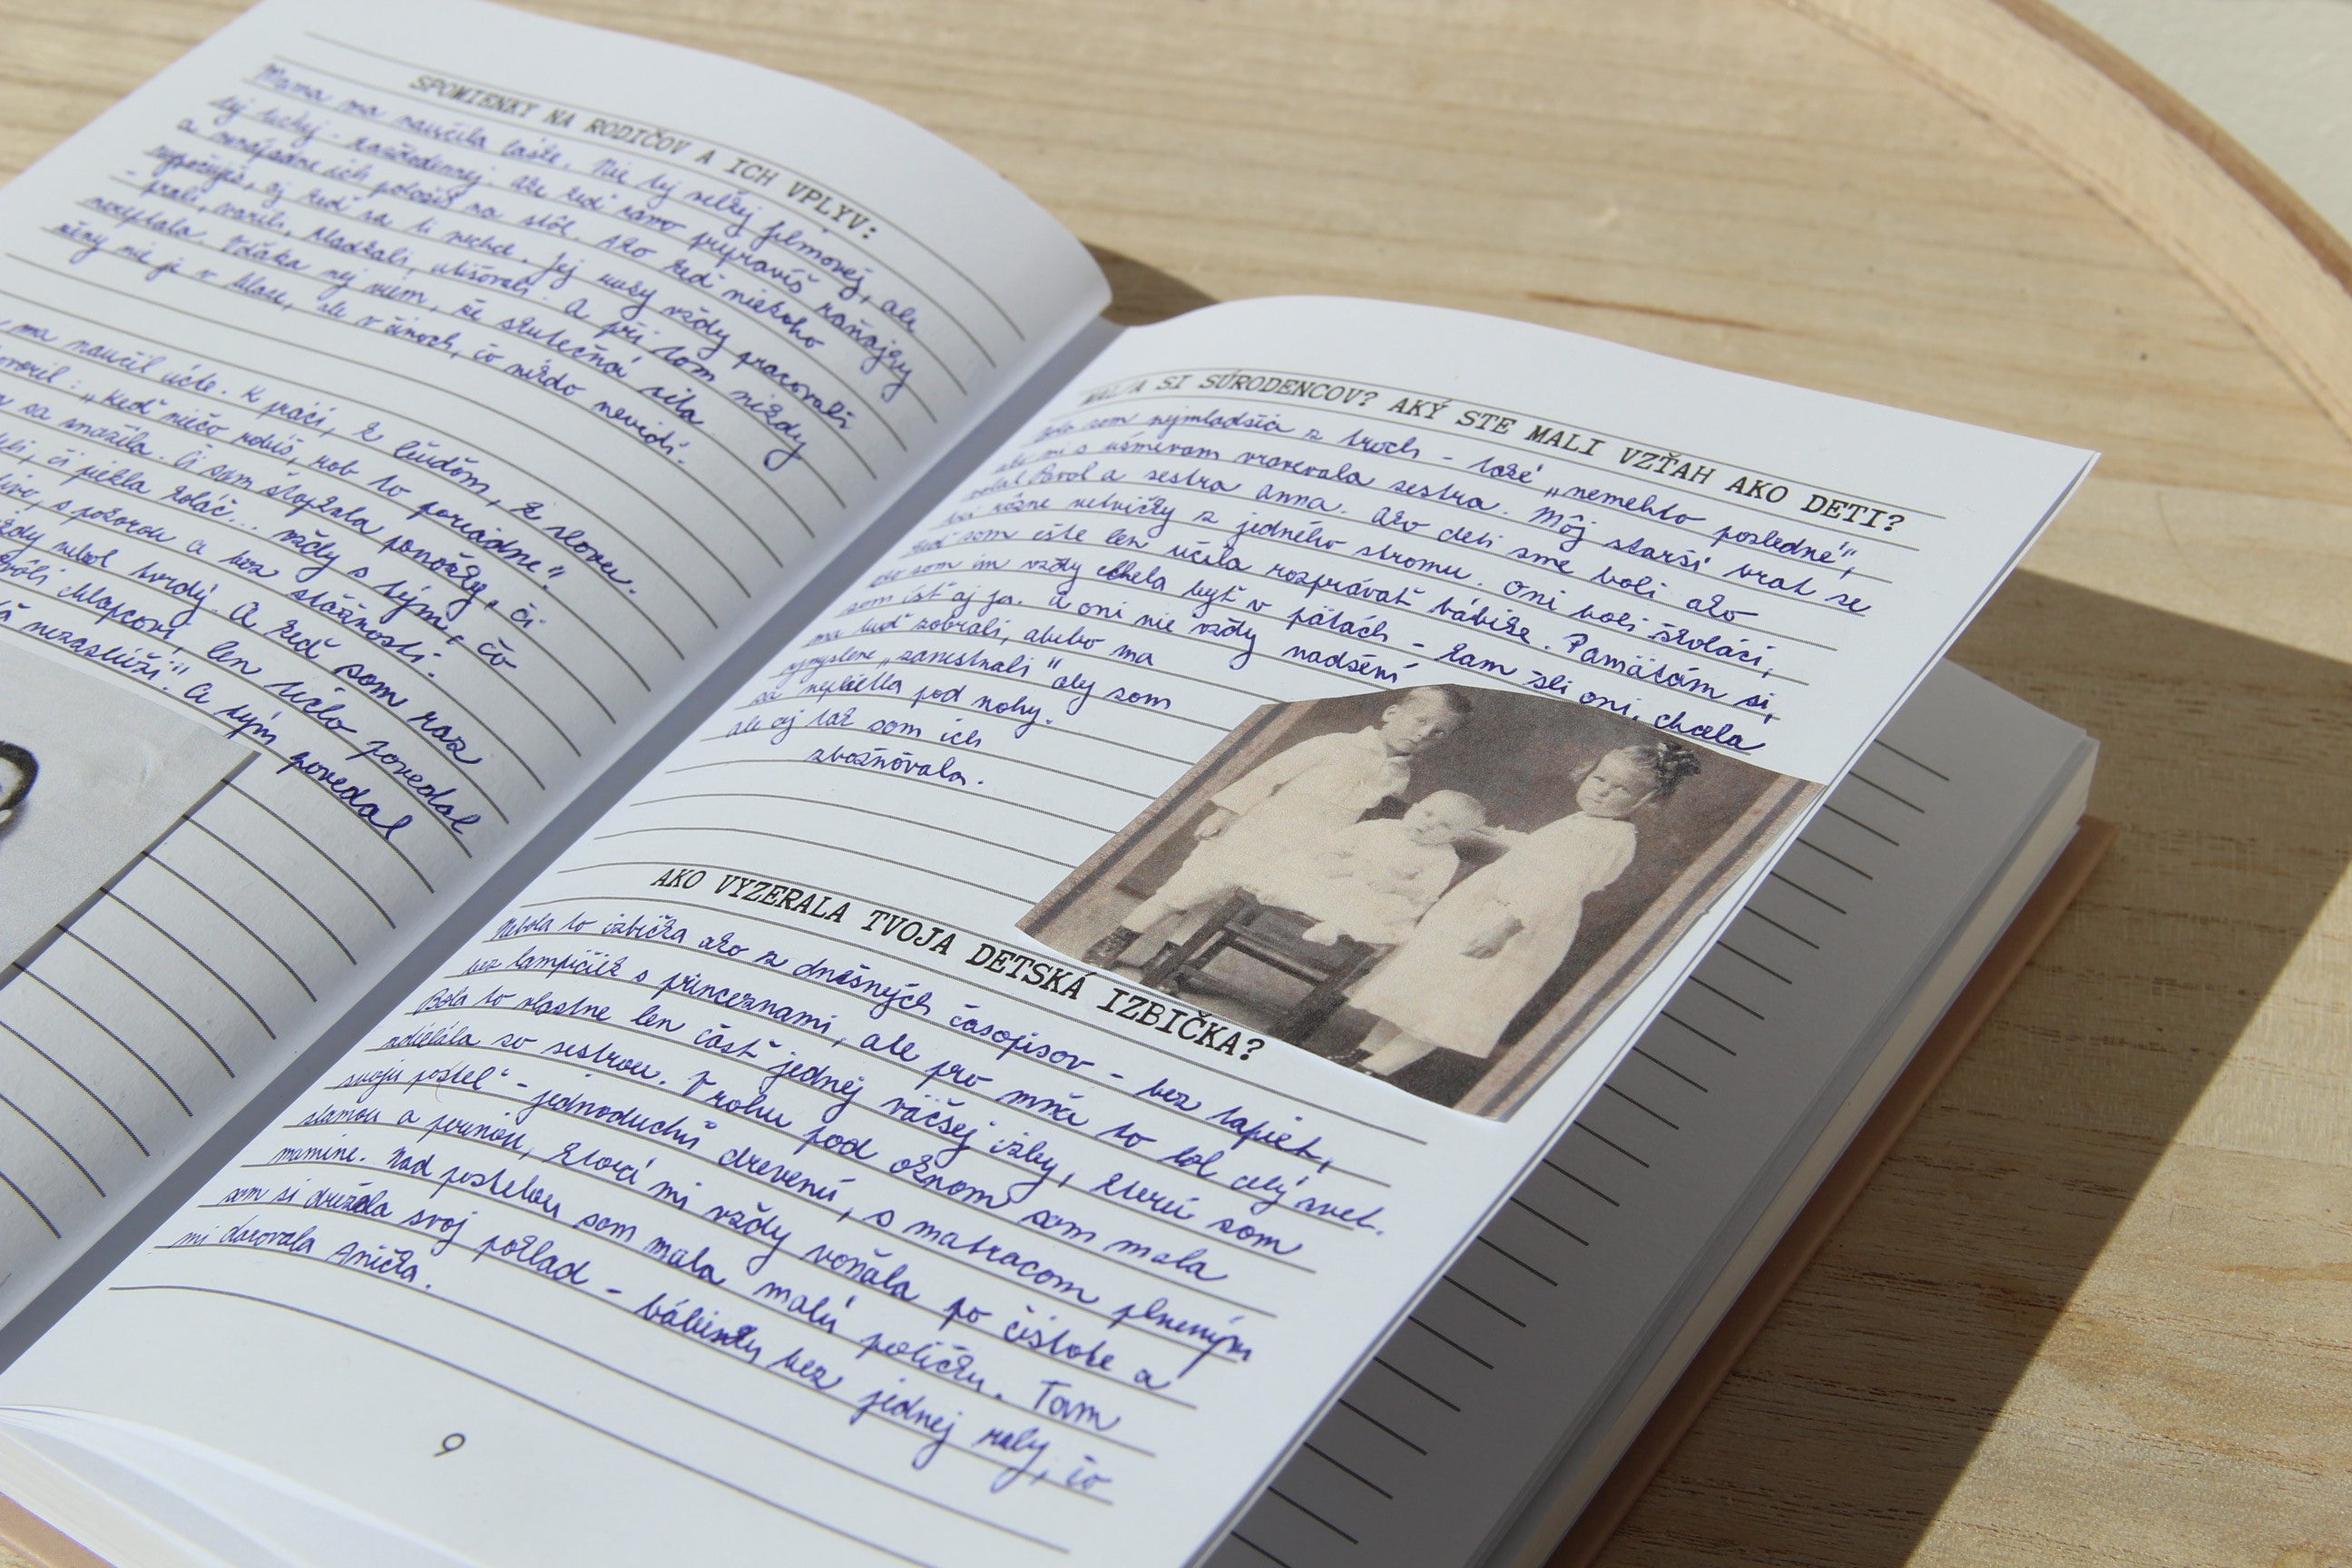 SPOMIENKY NA RODIČOV A ICH VPLYV:
Mama ma naučila láske. Nie tej veľkej filmovej, ale
tej tichej - každodennej. Ale keď ráno pripravíš raňajky
a ich položíš na stôl. Ako keď niekoho
aj keď sa ti nechce. Jej ruky vždy pracovali
- prali, varili, hladkali, utišovali. A pri tom nikdy
nereptala. Vďaka nej viem, že skutočná sila
nie je v hlase, ale v činoch, čo nikdo nevidí.
ma naučil úcte. K práci, k ľuďom, k slovu.
hovoril: "Keď niečo robíš, rob to poriadne".
sa snažila. Či som štopkala ponožky, či
či piekla koláč... vždy s tým, čo
s pokorou a bez sťažností.
nebol tvrdý. A keď som raz
chlapcovi, len ticho povedal
nezaslúži." A tým povedal
MAL/A SI SÚRODENCOV? AKÝ STE MALI VZŤAH AKO DETI?
Bola som najmladšia z troch - také "nemehlo posledné",
ako mi s úsmevom vravevala sestra. Môj starší brat se
volal Pavol a sestra Anna. Ako deti sme boli ako
tri rôzne vetvičky z jedného stromu. Oni boli školáci,
keď som ešte len učila rozprávať bábike. Pamätám si,
ako som im vždy chcela byť v pätách - kam šli oni, chcela
som ísť aj ja. A oni nie vždy nadšení
ma buď zobrali, alebo ma
"zamestnali" aby som
sa neplietla pod nohy.
ale aj tak som ich
zbožňovala.
AKO VYZERALA TVOJA DETSKÁ IZBIČKA?
Nebola to izbička ako z dnešných časopisov - bez tapiet,
bez lampičiek s princeznami, ale pro mňa to bol celý svet.
Bola to vlastne len časť jednej väčšej izby, kterú som
zdieľala so sestrou. V rohu pod oknom som mala
svoju posteľ - jednoduchú drevenú, s matracom plneným
slamou a perinou, ktorá mi vždy voňala po čistote a
mamine. Nad posteľou som mala malú poličku. Tam
som si držala svoj poklad - bábiku bez jednej ruky, čo
mi darovala Anička.
9